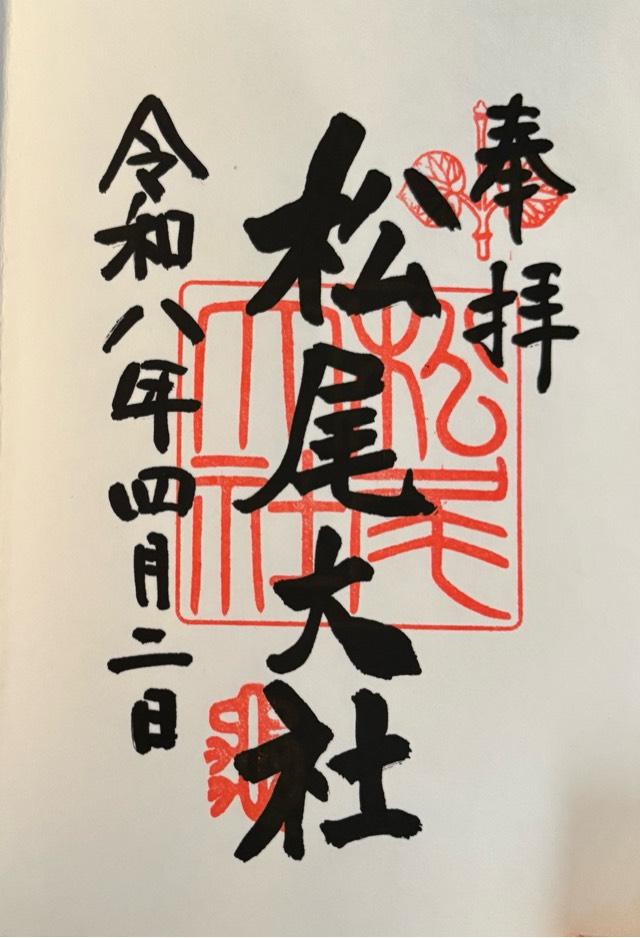 奉拝
松尾大社
令和八年四月二日
松尾
大社